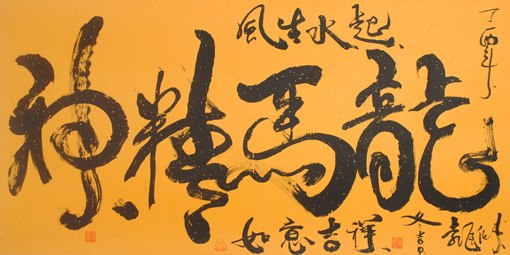 丁酉年
風生水起
龍馬精神
如意吉祥